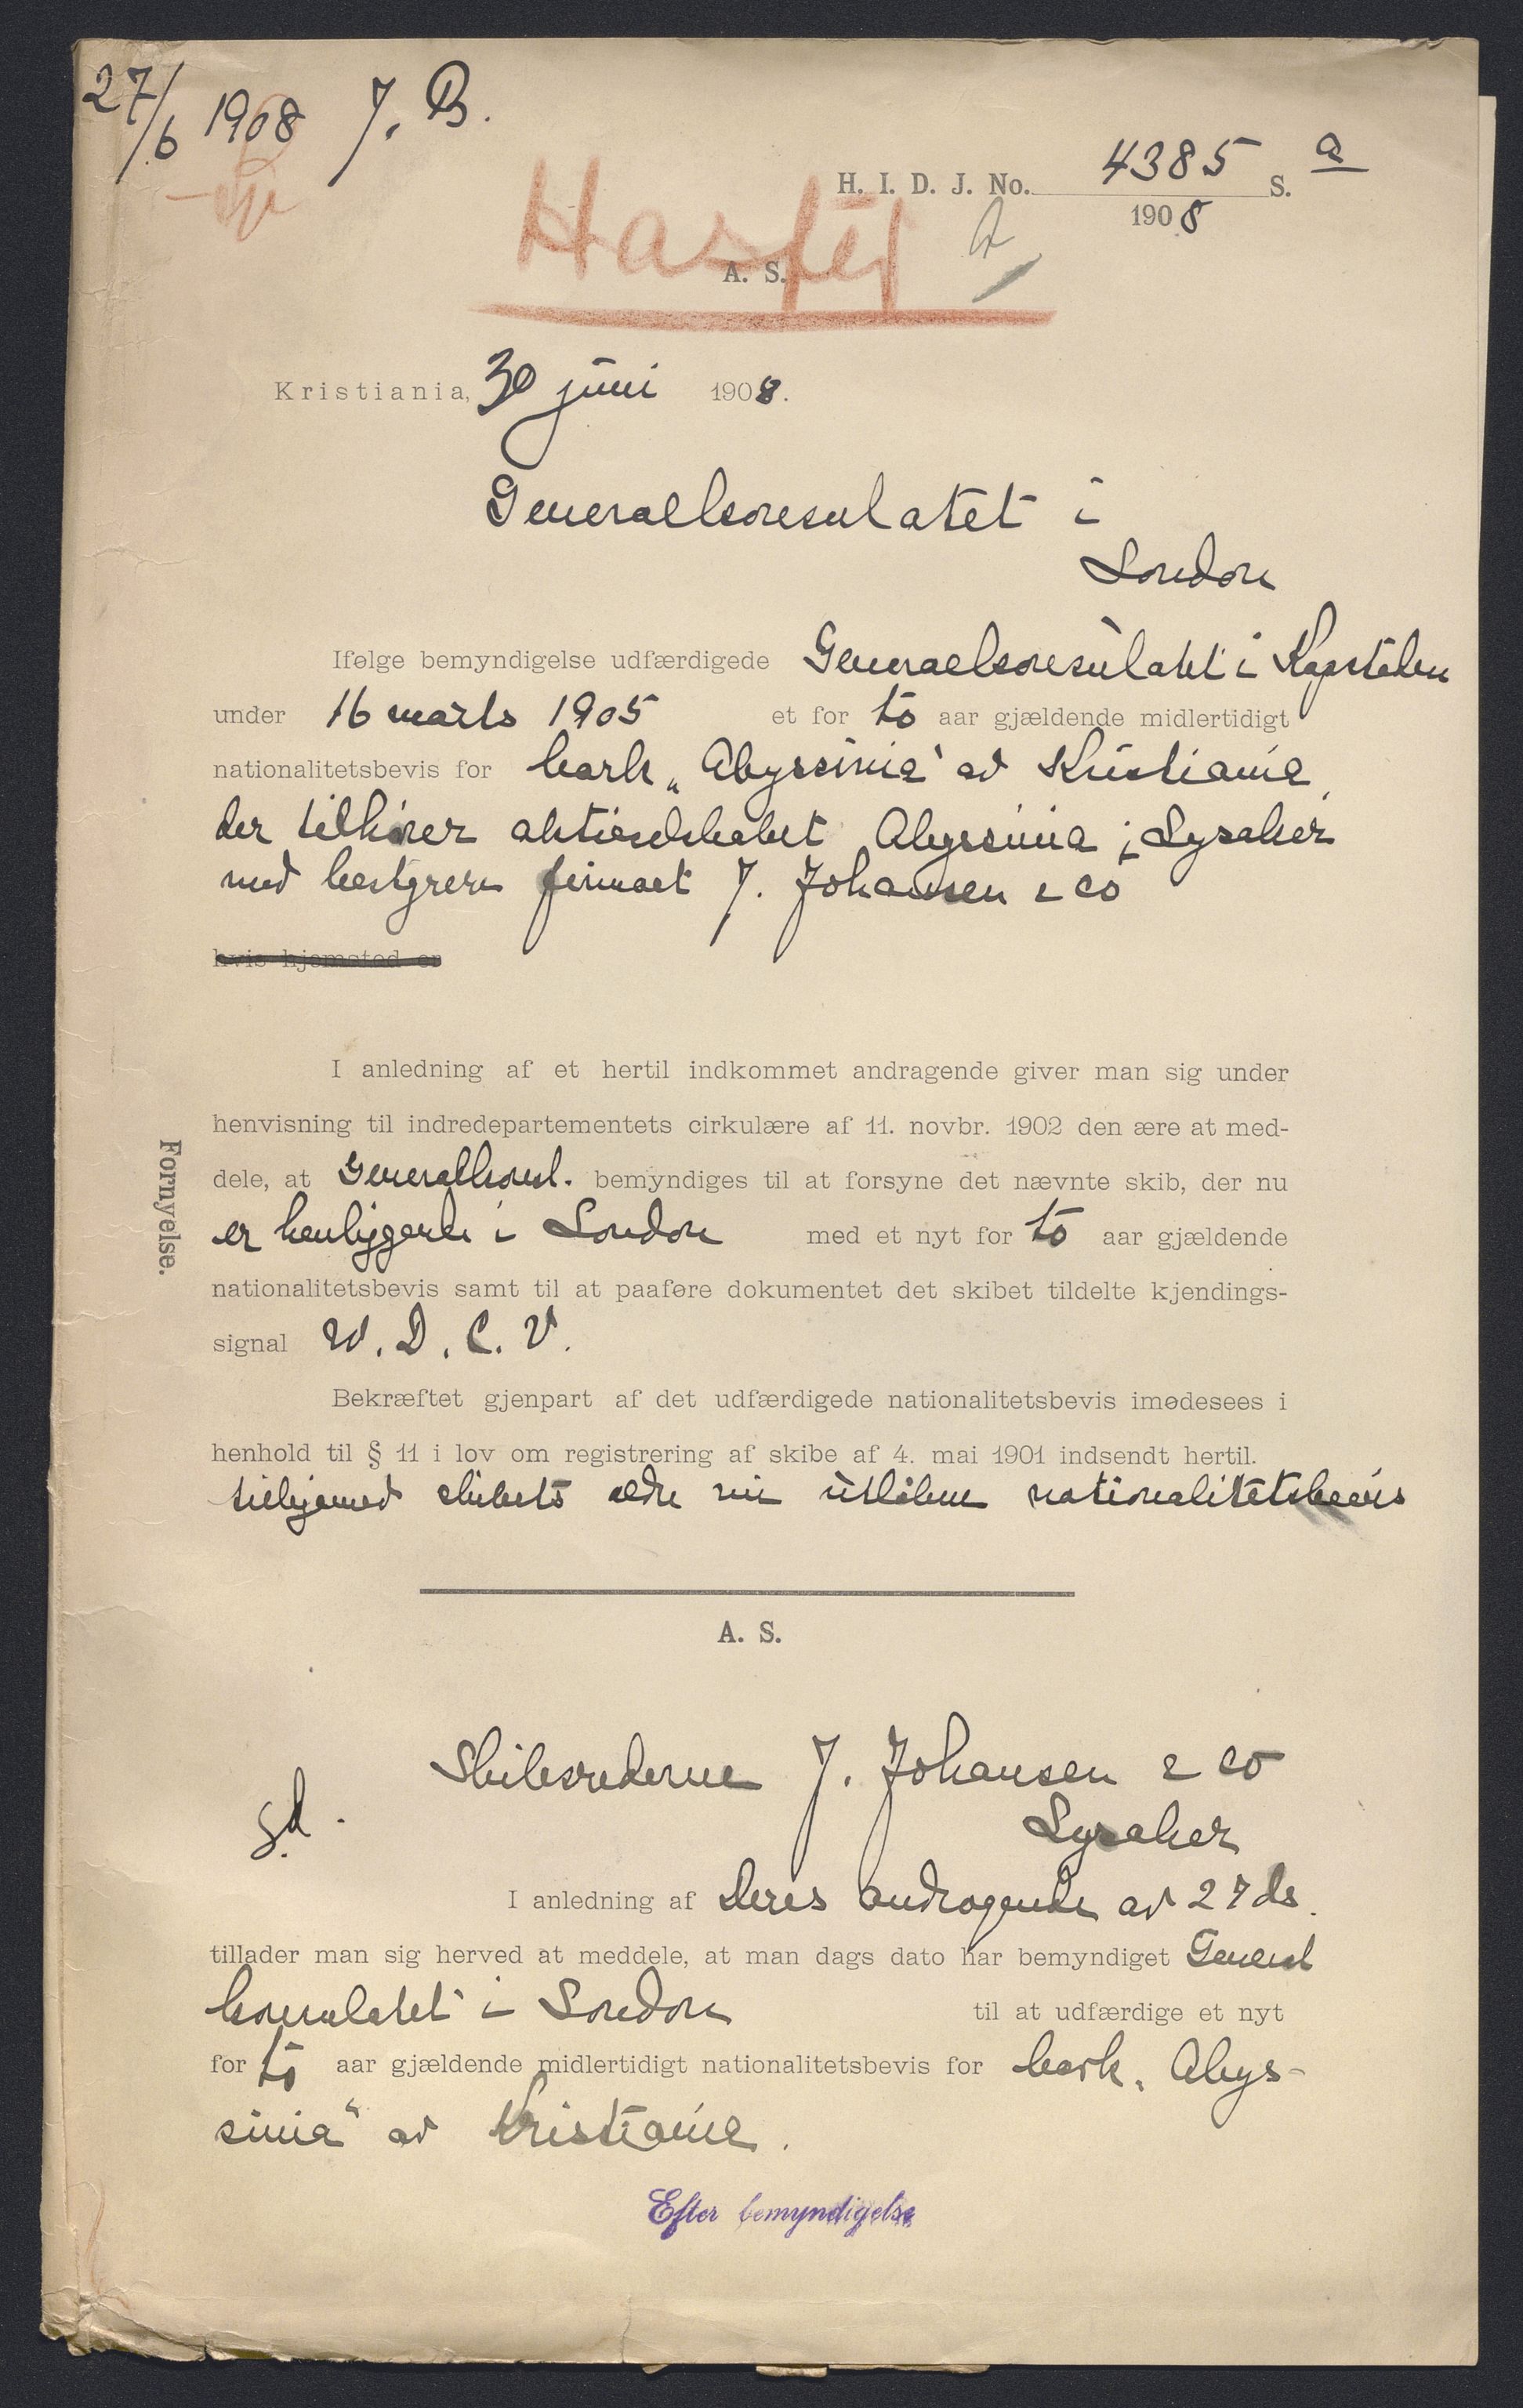 27/6 1908 J. B.
H. I. D. J. No. 4385 S. a
1908
Haster
A. S.
Kristiania, 30 juni 1908.
Generalkonsulatet i
London
Ifølge bemyndigelse udfærdigede Generalkonsulatet i Kapstaden
under 16 marts 1905 et for to aar gjældende midlertidigt
nationalitetsbevis for bark „Abyssinia" av Kristiania,
der tilhører aktieselskabet Abyssinia i Lysaker
med bestyrer firmaet J. Johansen & Co
hvis hjemsted er
I anledning af et hertil indkommet andragende giver man sig under
henvisning til indredepartementets cirkulære af 11. novbr. 1902 den ære at med-
dele, at Generalkonsul. bemyndiges til at forsyne det nævnte skib, der nu
er henliggende i London med et nyt for to aar gjældende
nationalitetsbevis samt til at paaføre dokumentet det skibet tildelte kjendings-
signal W. D. C. V.
Bekræftet gjenpart af det udfærdigede nationalitetsbevis imødesees i
henhold til § 11 i lov om registrering af skibe af 4. mai 1901 indsendt hertil.
tilligemed skibets ældre nu utløbne nationalitetsbevis
Fornyelse.
A. S.
Skibsrederne J. Johansen & Co
Lysaker
I anledning af Deres andragende av 27 ds.
tillader man sig herved at meddele, at man dags dato har bemyndiget General
konsulatet i London til at udfærdige et nyt
for to aar gjældende midlertidigt nationalitetsbevis for bark „Abys-
sinia" av Kristiania.
Efter bemyndigelse